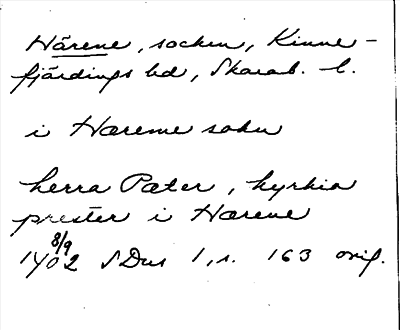 Härene, socken, Kinne-
fjärdings hd, Skarab. l.
i Hærene sokn
herra Pæter, kyrkio
prester i Hærene
1402 8/9 SDns 1, s. 163 orig.